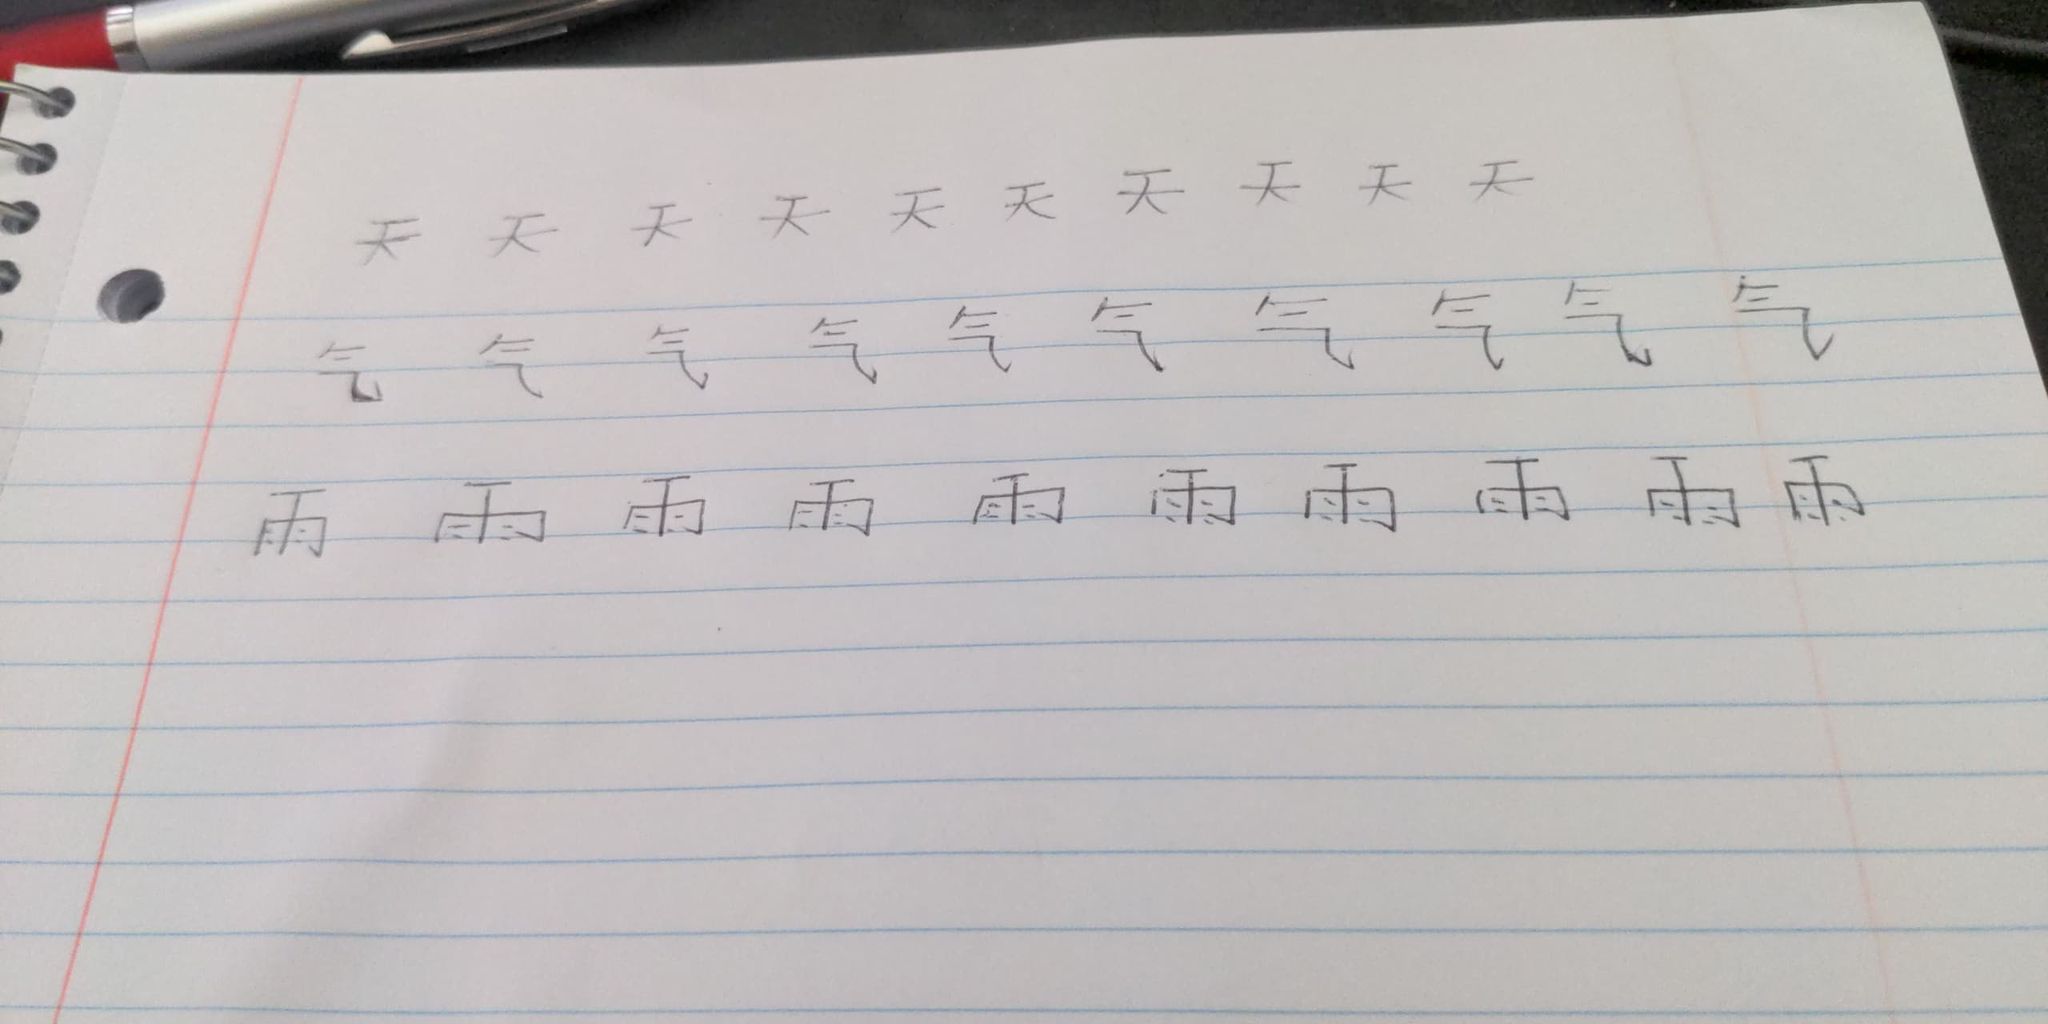 天 天 天 天 天 天 天 天 天 天
气 气 气 气 气 气 气 气 气 气
雨 雨 雨 雨 雨 雨 雨 雨 雨 雨